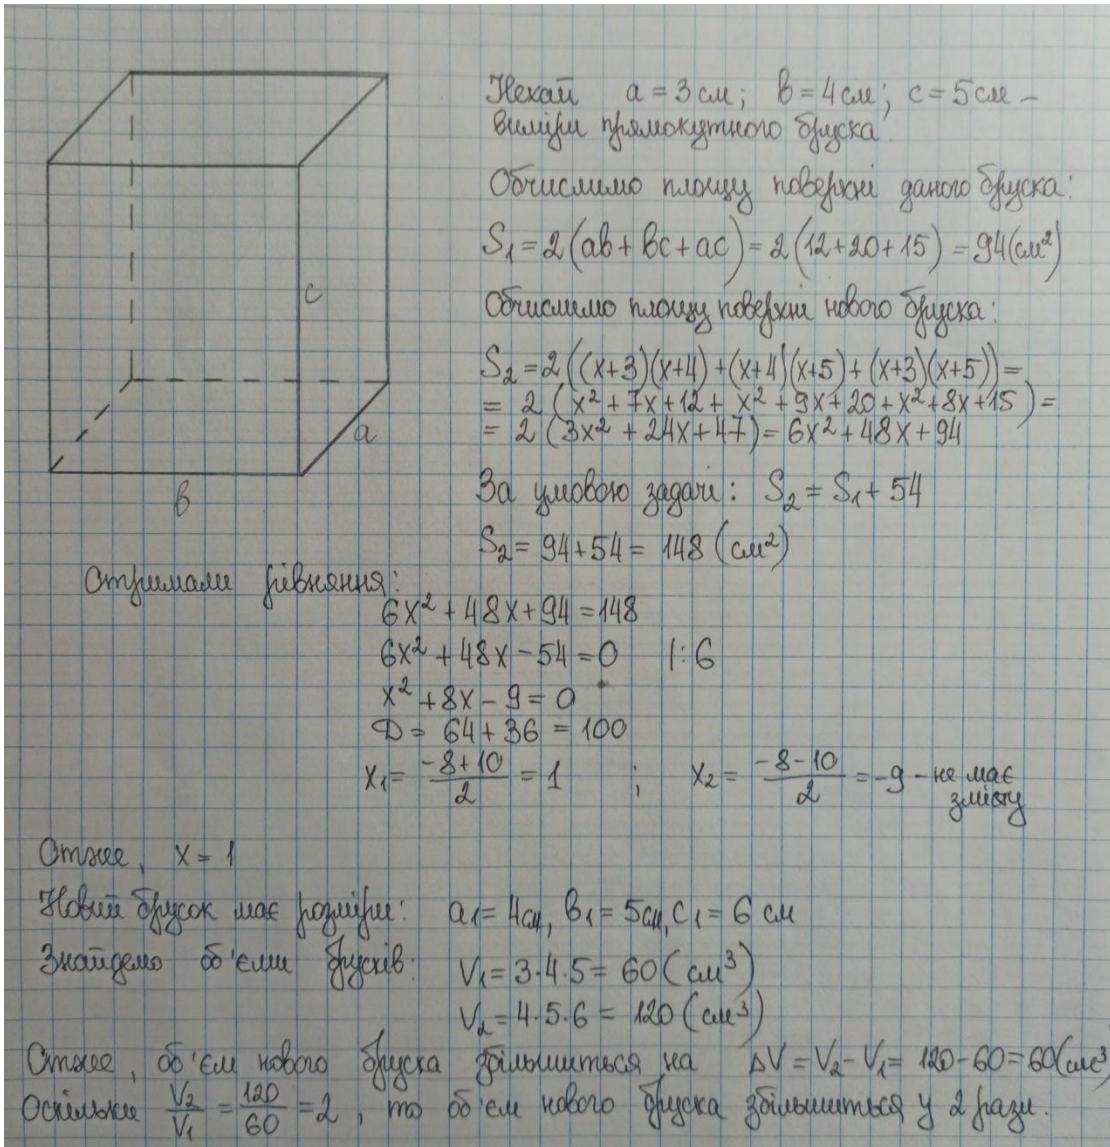 Нехай a = 3 см; в = 4 см; c = 5 см –
виміри прямокутного бруска.
Обчислимо площу поверхні даного бруска:
S₁ = 2(ав + вc + ac) = 2(12+20+15) = 94(см²)
Обчислимо площу поверхні нового бруска:
S₂ = 2((x+3)(x+4) + (x+4)(x+5) + (x+3)(x+5)) =
= 2(x² + 7x + 12 + x² + 9x + 20 + x² + 8x + 15) =
= 2(3x² + 24x + 47) = 6x² + 48x + 94
c
a
в
За умовою задачі: S₂ = S₁ + 54
S₂ = 94 + 54 = 148 (см²)
Отримали рівняння:
6x² + 48x + 94 = 148
6x² + 48x – 54 = 0 |: 6
x² + 8x – 9 = 0
D = 64 + 36 = 100
x₁ = (-8+10)/2 = 1 ; x₂ = (-8-10)/2 = -9 – не має змісту
Отже, x = 1
Новий брусок має розміри: a₁ = 4см, в₁ = 5см, c₁ = 6 см
Знайдемо об'єми брусків: V₁ = 3·4·5 = 60 (см³)
V₂ = 4·5·6 = 120 (см³)
Отже, об'єм нового бруска збільшиться на ΔV = V₂ – V₁ = 120 – 60 = 60(см³
Оскільки V₂/V₁ = 120/60 = 2, то об'єм нового бруска збільшиться у 2 рази.